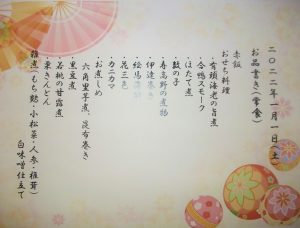 二〇二二年一月一日(土)
お品書き(常食)
赤飯
おせち料理
・有頭海老の旨煮
・合鴨スモーク
・ほたて煮
・数の子
・寿高野の煮物
・伊達巻き
・絵馬
・花三色
・カニカマ
・お煮しめ
六角里芋煮、昆布巻き
・黒豆煮
・若桃の甘露煮
・栗きんとん
雑煮(もち麩・小松菜・人参・椎茸)
白味噌仕立て